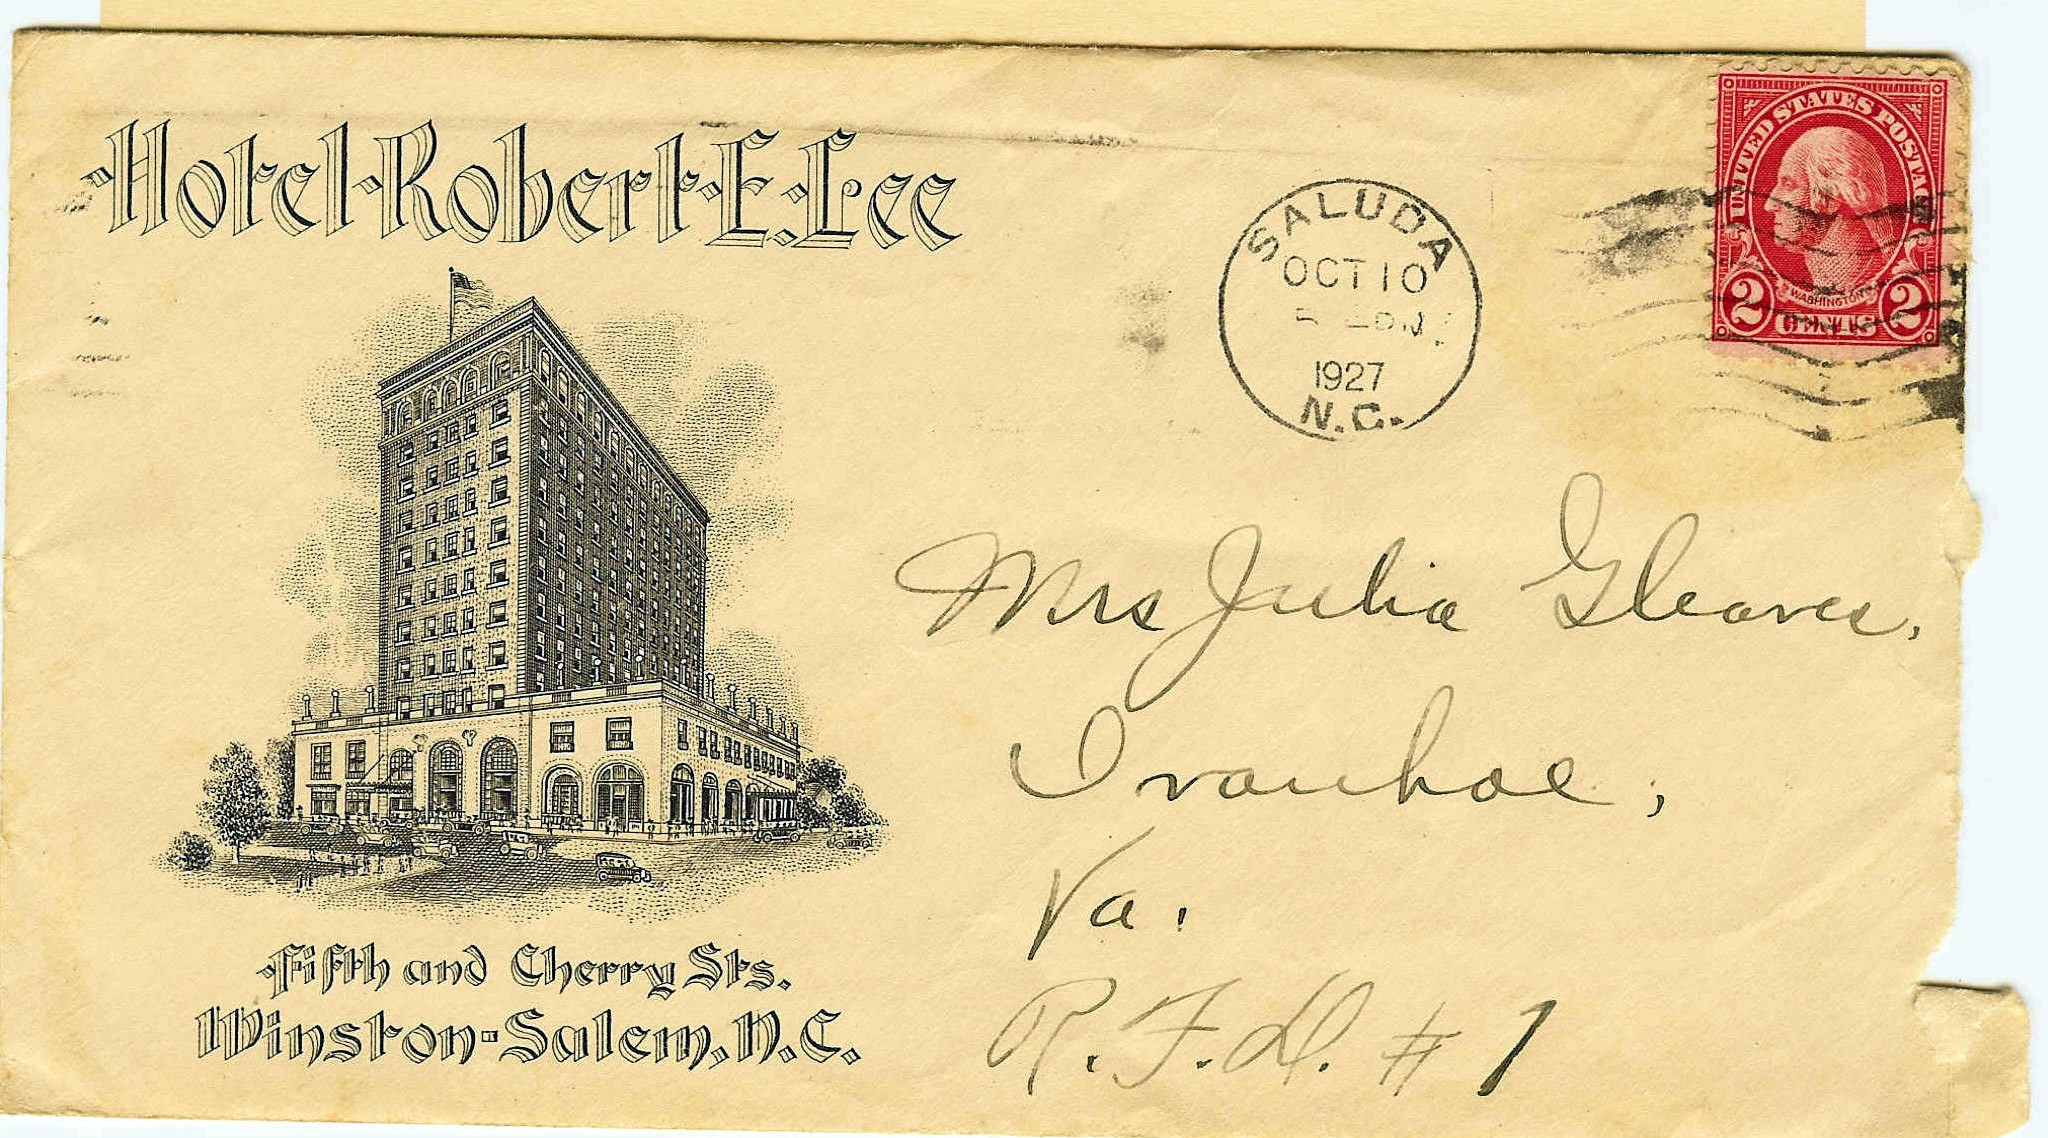 Hotel Robert E. Lee
SALUDA
OCT 10
1927
N.C.
UNITED STATES POSTAGE
WASHINGTON
2 CENTS 2
Mrs Julia Gleaves,
Ivanhoe,
Va.
R.F.D. # 1
Fifth and Cherry Sts.
Winston-Salem, N.C.